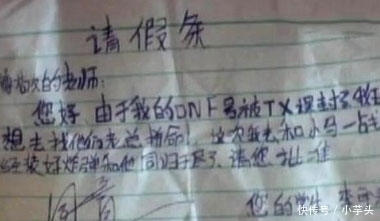 请假条
敬的老师:
您好 由于我的DNF号被TX误封了我
想去找他们老总拼命! 这次我去和小马一战
经装好炸弹和他同归于尽了, 请您批准
同意
您的学
快传号 / 小芋头